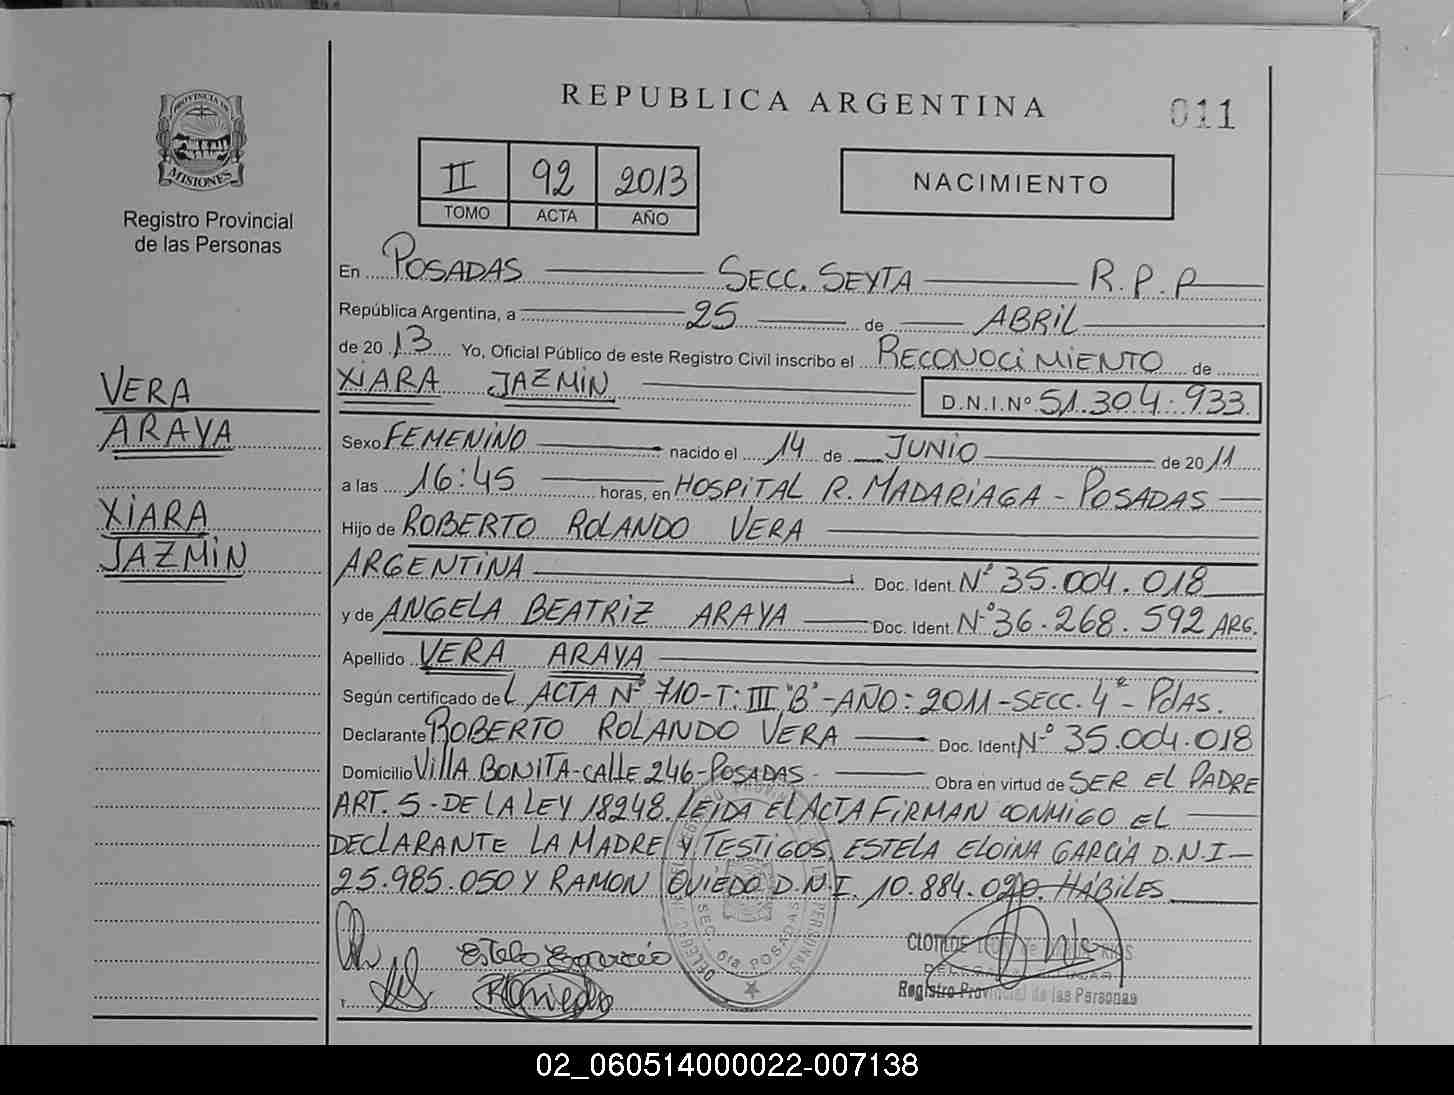 REPUBLICA ARGENTINA
011
PROVINCIA DE
MISIONES
Registro Provincial
de las Personas
II 92 2013
TOMO ACTA AÑO
NACIMIENTO
VERA
ARAYA
XIARA
JAZMIN
En POSADAS SECC. SEXTA R.P.P
República Argentina, a 25 de ABRIL
de 2013 Yo, Oficial Público de este Registro Civil inscribo el RECONOCIMIENTO de
XIARA JAZMIN D.N.I.Nº 51.304.933
Sexo FEMENINO nacido el 14 de JUNIO de 2011
a las 16:45 horas, en HOSPITAL R. MADARIAGA - POSADAS
Hijo de ROBERTO ROLANDO VERA
ARGENTINA Doc. Ident. Nº 35.004.018
y de ANGELA BEATRIZ ARAYA Doc. Ident. Nº 36.268.592 ARG.
Apellido VERA ARAYA
Según certificado de L ACTA Nº 710-T: III "B"-AÑO: 2011-SECC. 4ª - PdAS.
Declarante ROBERTO ROLANDO VERA Doc. Ident Nº 35.004.018
Domicilio VILLA BONITA-CALLE 246-POSADAS - Obra en virtud de SER EL PADRE
ART. 5 - DE LA LEY 18248. LEIDA EL ACTA FIRMAN CONMIGO EL
DECLARANTE LA MADRE Y TESTIGOS, ESTELA ELOINA GARCIA D.N.I-
25.985.050 Y RAMON OVIEDO D.N.I. 10.884.020. HÁBILES
Estela Garcia
ROviedo
SEC. 6ta POSADAS
CLOTILDE
Registro Provincial de las Personas
02_060514000022-007138